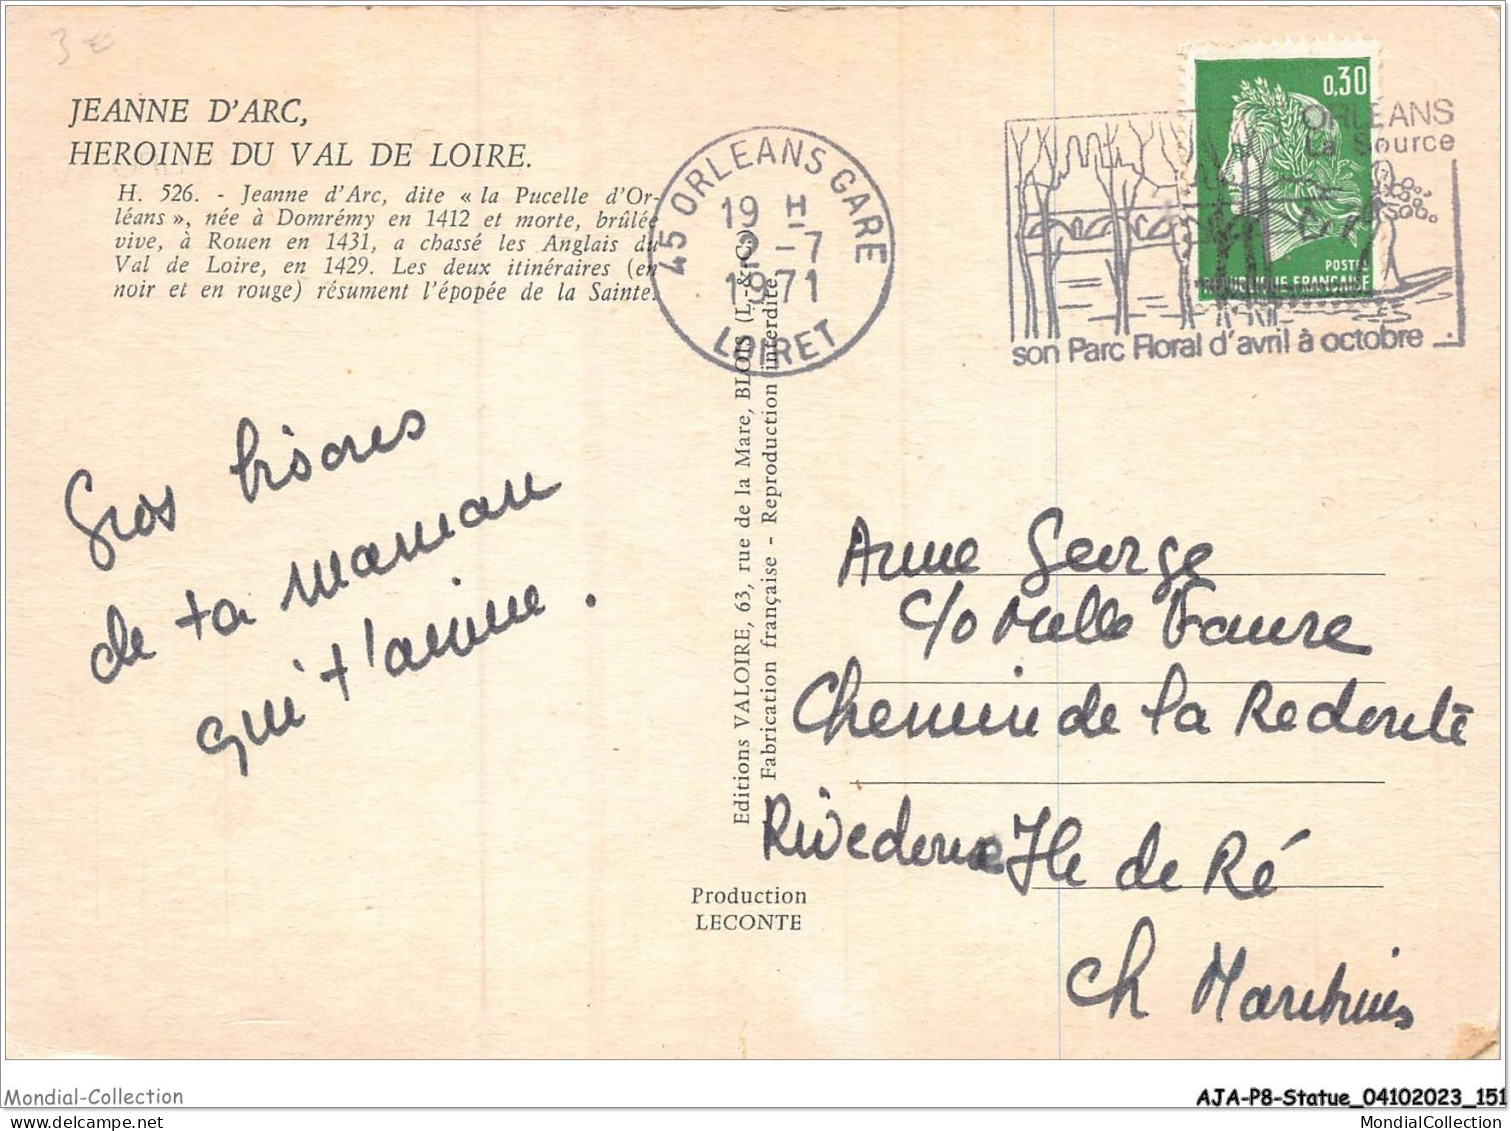 3 €
JEANNE D'ARC,
HEROINE DU VAL DE LOIRE.
H. 526. - Jeanne d'Arc, dite « la Pucelle d'Or-
léans », née à Domrémy en 1412 et morte, brûlée
vive, à Rouen en 1431, a chassé les Anglais du
Val de Loire, en 1429. Les deux itinéraires (en
noir et en rouge) résument l'épopée de la Sainte.
45 ORLEANS GARE
19 H
2-7
1971
LOIRET
0,30
POSTES
REPUBLIQUE FRANÇAISE
ORLÉANS
La Source
son Parc Floral d'avril à octobre
Gros bisous
de ta maman
qui t'aime.
Editions VALOIRE, 63, rue de la Mare, BLOIS (L.-&-C.)
Fabrication française - Reproduction interdite.
Production
LECONTE
Anne George
c/o Melle Faure
Chemin de la Redoute
Rivedoux Ile de Ré
Ch Maritimes
Mondial-Collection
AJA-P8-Statue_04102023_151
MondialCollection